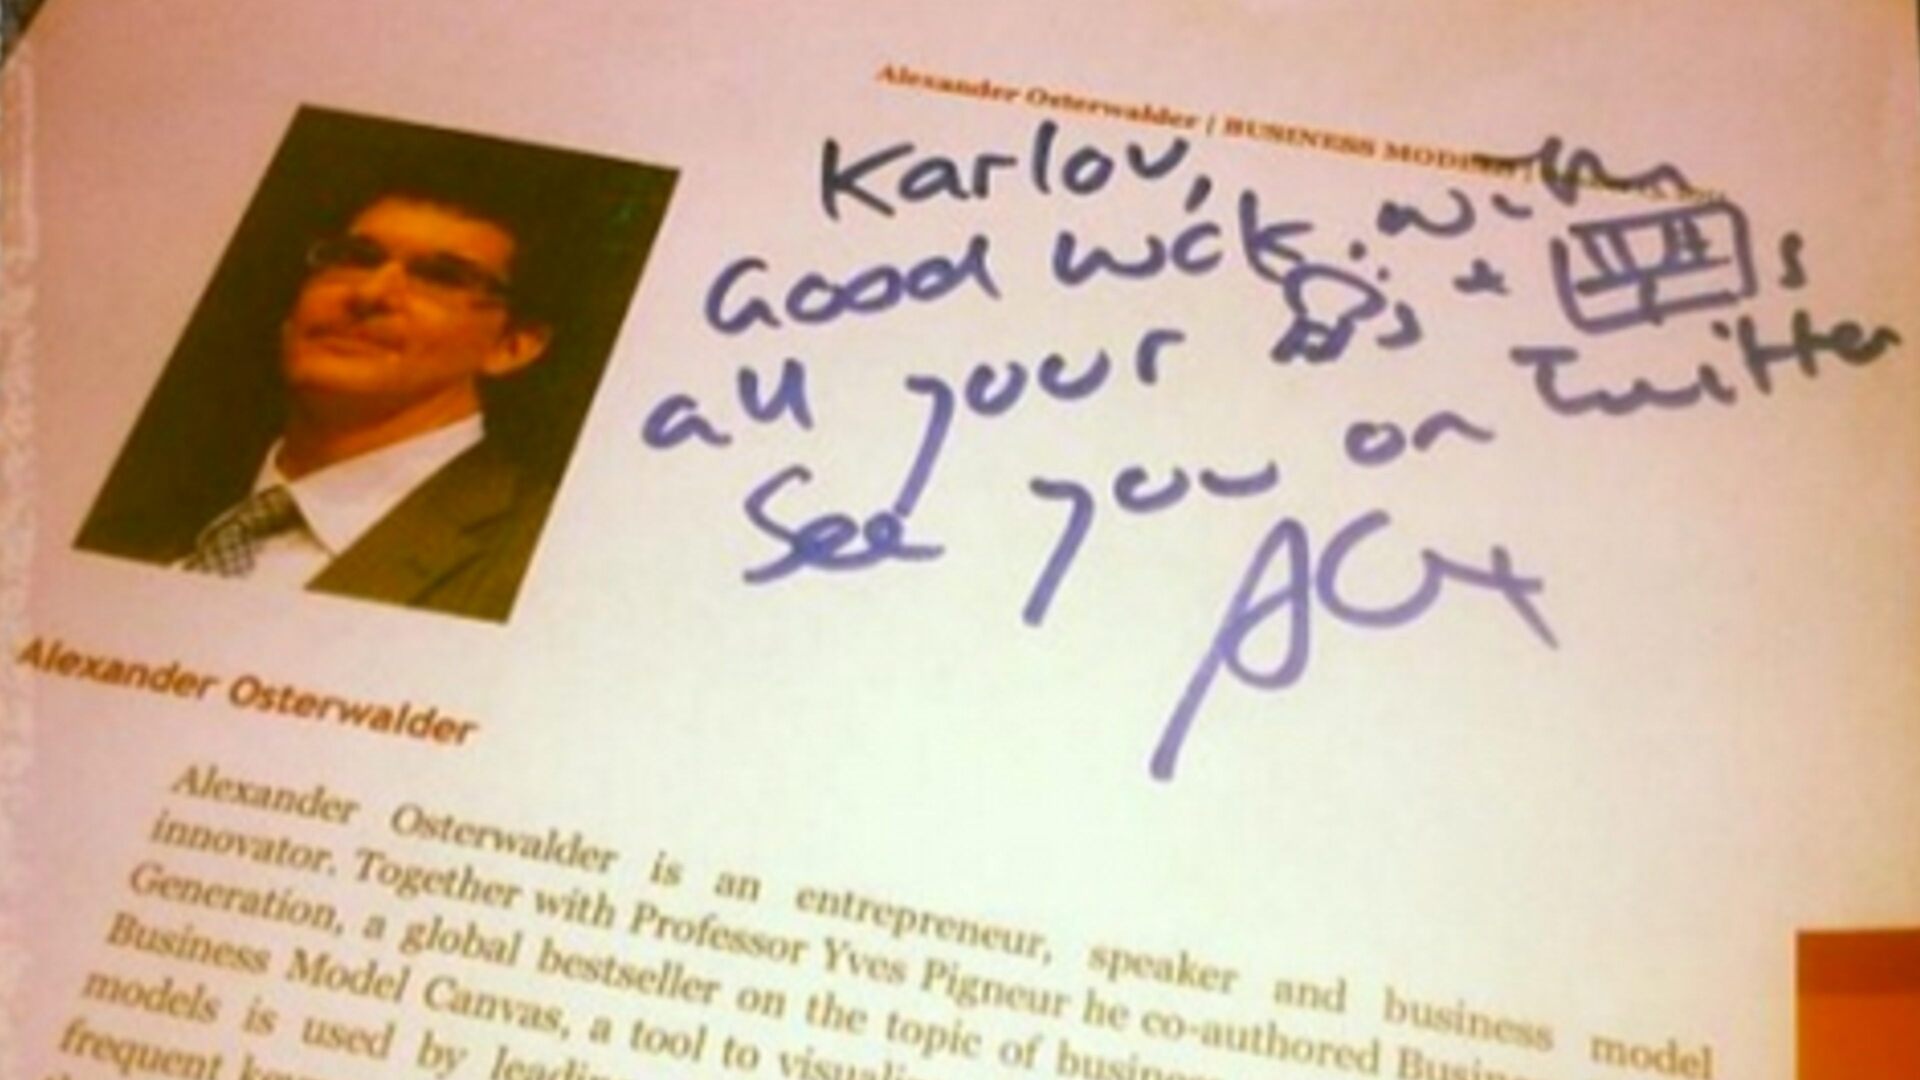 Alexander Osterwalder | BUSINESS
Karlov,
Good luck with
all your s + s
See you on Twitter
Alex
Alexander Osterwalder
Alexander Osterwalder is an entrepreneur, speaker and business model
innovator. Together with Professor Yves Pigneur he co-authored
Generation, a global bestseller on the topic of
Business Model Canvas, a tool to
models is used by
frequent